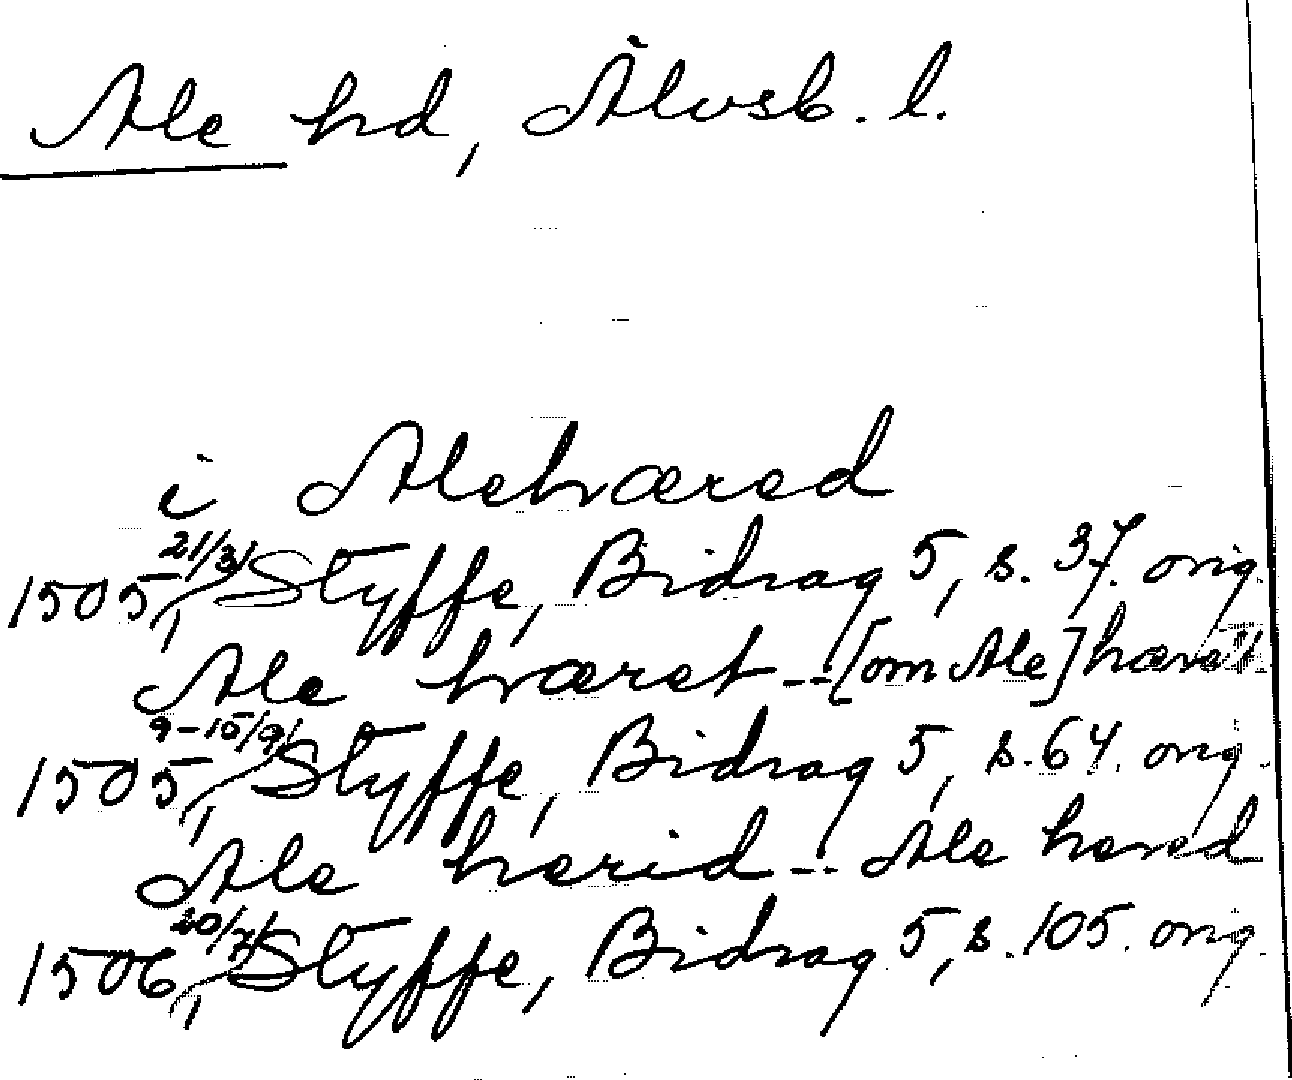 Ale hd, Älvsb. l.
i Alehæred
1505 21/3, Styffe, Bidrag 5, s. 37. orig.
Ale hræret -- [om Ale] hæret
1505 9-15/9, Styffe, Bidrag 5, s. 64. orig.
Ale herid -- Ale hered
1506 20/7, Styffe, Bidrag 5, s. 105. orig.